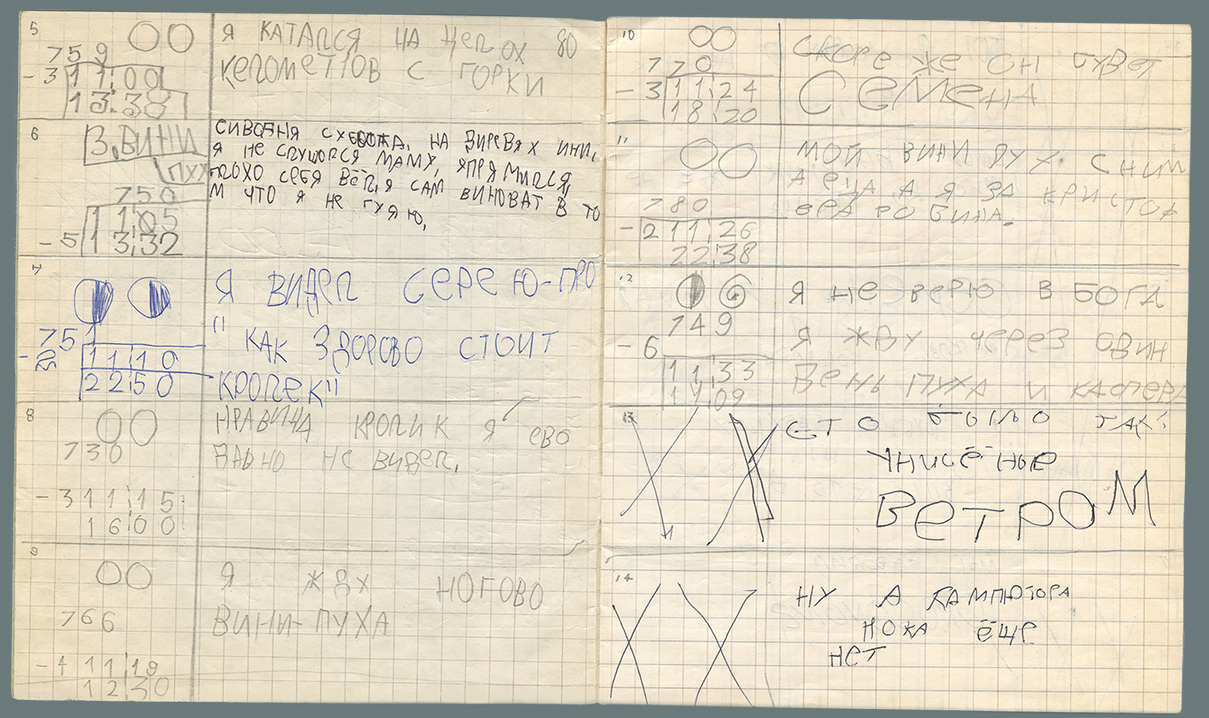 5
759
- 3 11:00
13:38
Я КАТАЛСЯ НА ЦЕП ОХ 80
КЕЛОМЕТІОВ С ГОРКИ
6
З, ВИНИ
ПУХ
750
11:05
- 5 13:32
СИВОДНЯ СХВОТА, НА ВИРЕВЯХ ИНИ,
Я НЕ СЛУШОЛСЯ МАМУ, ЯПРЯМИЛСЯ,
ПОХО СЕБЯ ВЁЛ, Я САМ ВИНОВАТ В ТО
М ЧТО Я НЕ ГУЯЮ,
7
751
11:10
22:50
Я ВИДЕЛ СЕРЕЮ-ПРО
"КАК ЗДОРОВО СТОИТ
КРОЛЕК"
8
730
- 3 11:15
16:00
НРАВИЦА КРОЛИК Я ЕВО
ДАВНО НЕ ВИДЕЛ.
9
766
- 1 11:19
12:30
Я ЖДХ НОГОВО
ВИНИ-ПУХА
10
770
- 3 11:24
18:20
СКОРЕ ЖЕ ОН БУВЕТ
СЕМЕНА
11
780
- 2 11:26
22:38
МОЙ ВИНИ ПУХ. С НИМ
А ЕЦА А Я ЗА КРИСТОФ
ЕРА РОБИНА.
12
749
- 6
11:33
17:09
Я НЕ ВЕРЮ В БОГА
Я ЖВУ ЧЕРЕЗ ОДИН
ДЕНЬ ПУХА И КАСПЕРА
13
ЕТО БЫЛО ТАК:
УНИСЁНЫЕ
ВЕТРОМ
14
НУ А КАМПЮТОРА
ПОКА ЁЩЕ
НЕТ